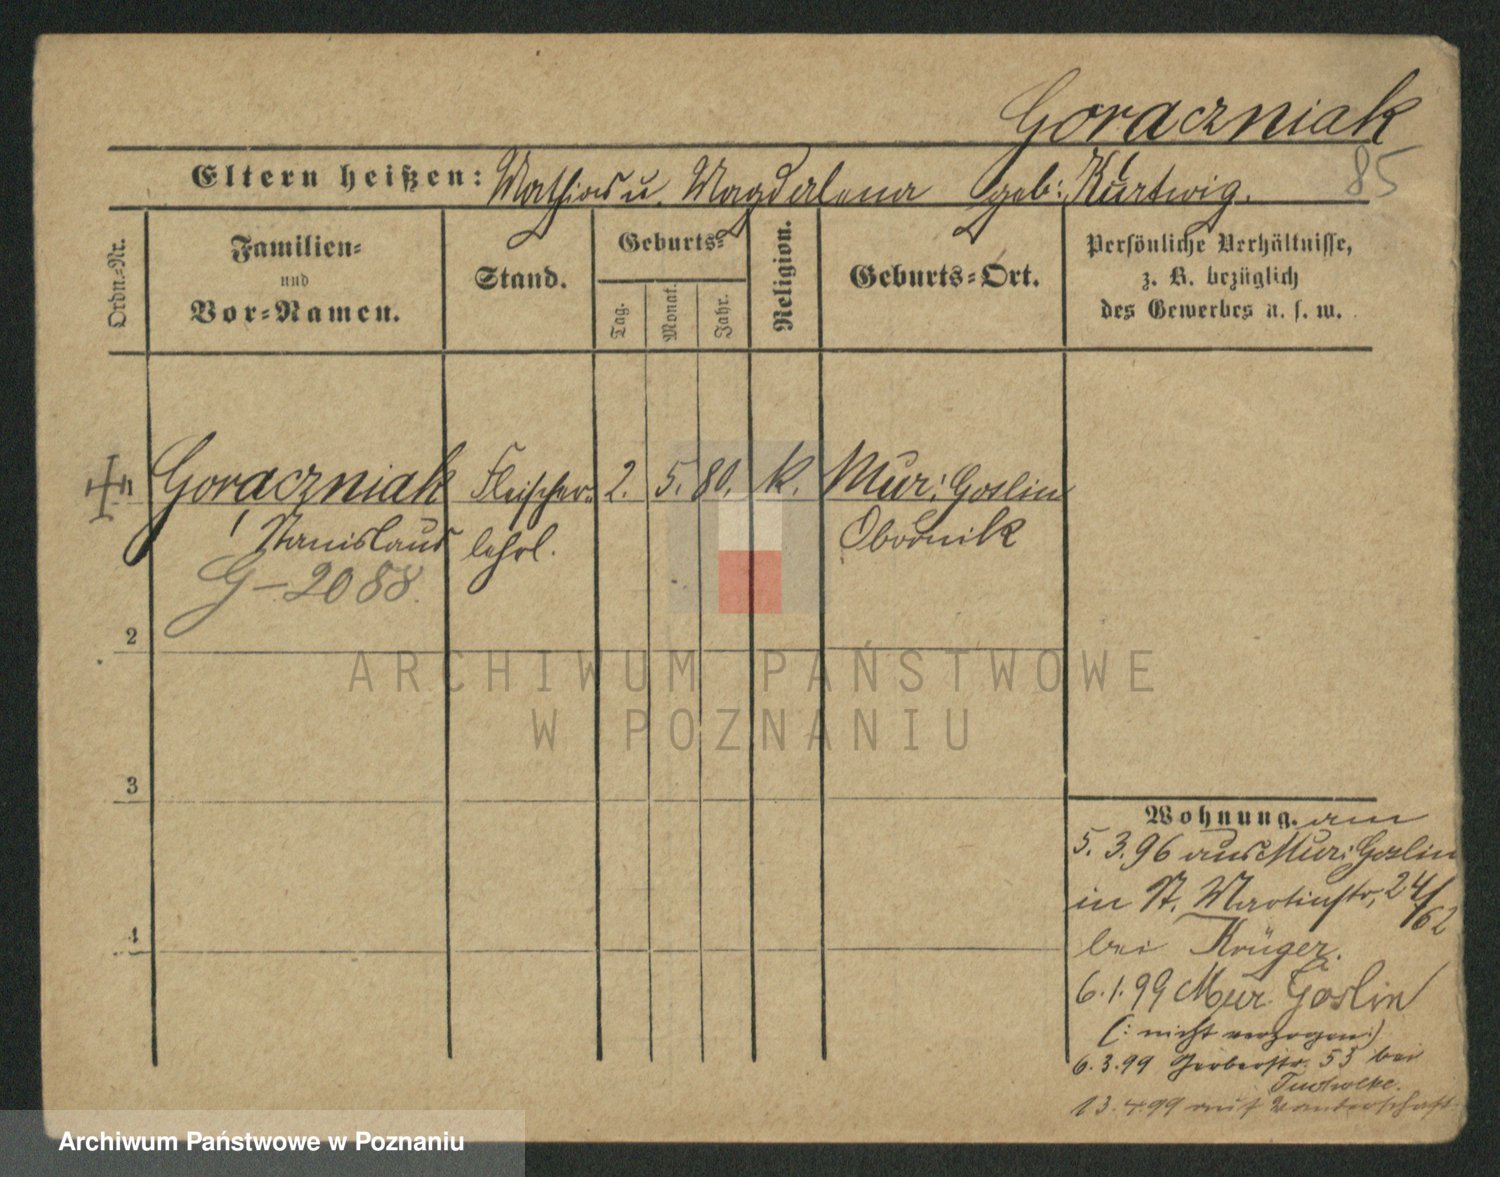 Goraczniak
85
Eltern heißen: Mathias u. Magdalena geb: Kurtwig.
Ordn.-Nr.
Familien-
und
Vor-Namen.
Stand.
Geburts-
Tag.
Monat.
Jahr.
Religion.
Geburts-Ort.
Persönliche Verhältnisse,
z. B. bezüglich
des Gewerbes u. s. w.
1 Goraczniak Fleischer- 2. 5. 80. k. Mur: Goslin
Stanislaus lehrl. Obornik
G-2088.
2
3
4
Wohnung. am
5. 3. 96 aus Mur: Goslin
in St. Martinstr. 24/62
bei Krüger.
6. 1. 99 Mur. Goslin
(: nicht verzogen :)
6. 3. 99 Gerberstr. 53 bei
13. 4. 99 auf Wanderschaft
ARCHIWUM PAŃSTWOWE
W POZNANIU
Archiwum Państwowe w Poznaniu